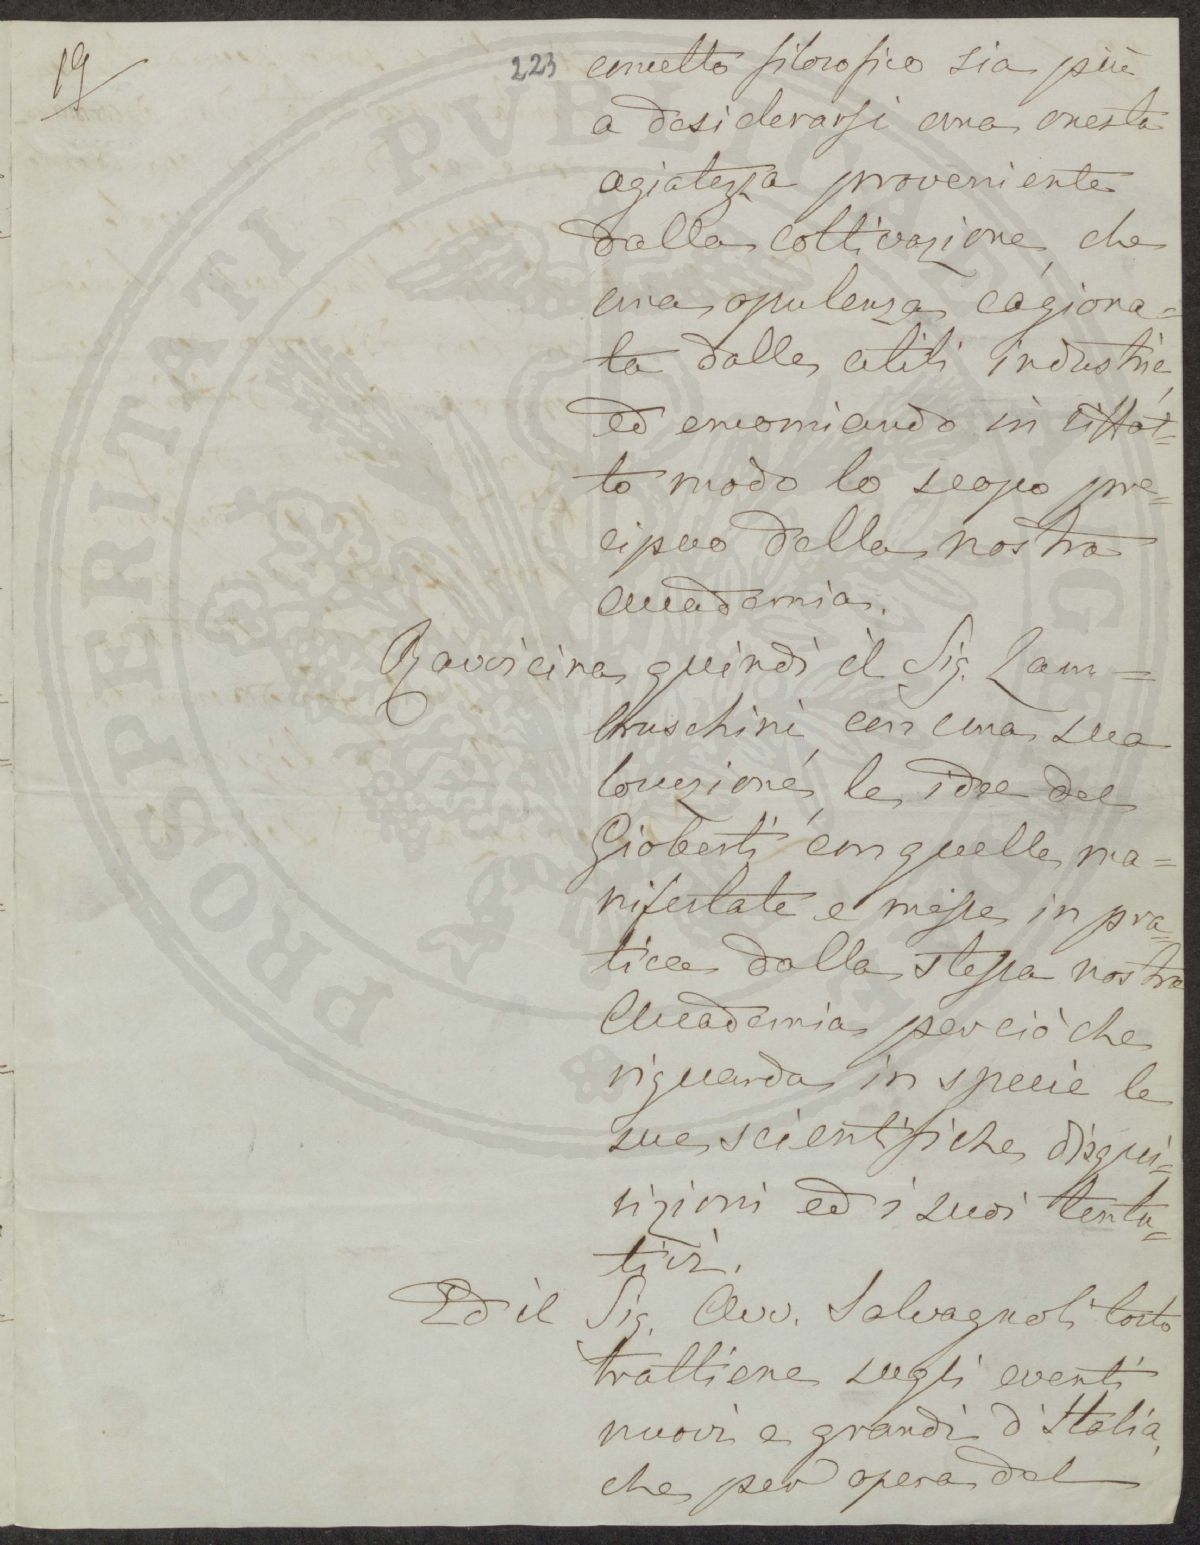 19
223
concetto filosofico sia più
a desiderarsi una onesta
agiatezza proveniente
dalla coltivazione, che
una opulenza cagiona=
ta dalle utili industrie,
ed encomiando in siffat=
to modo lo scopo pre=
cipuo della nostra
Accademia.
Ravvicina quindi il Sig. Lam=
bruschini, con una sua
locuzione, le idee del
Gioberti con quelle ma=
nifestate e messe in pra=
tica dalla stessa nostra
Accademia per ciò che
riguarda in specie le
sue scientifiche disqui=
sizioni ed i suoi tenta=
tivi.
Ed il Sig. Avv. Salvagnoli tosto
trattiene sugli eventi
nuovi e grandi d'Italia,
che per opera del
PROSPERITATI PVBLICAE AVGENDAE